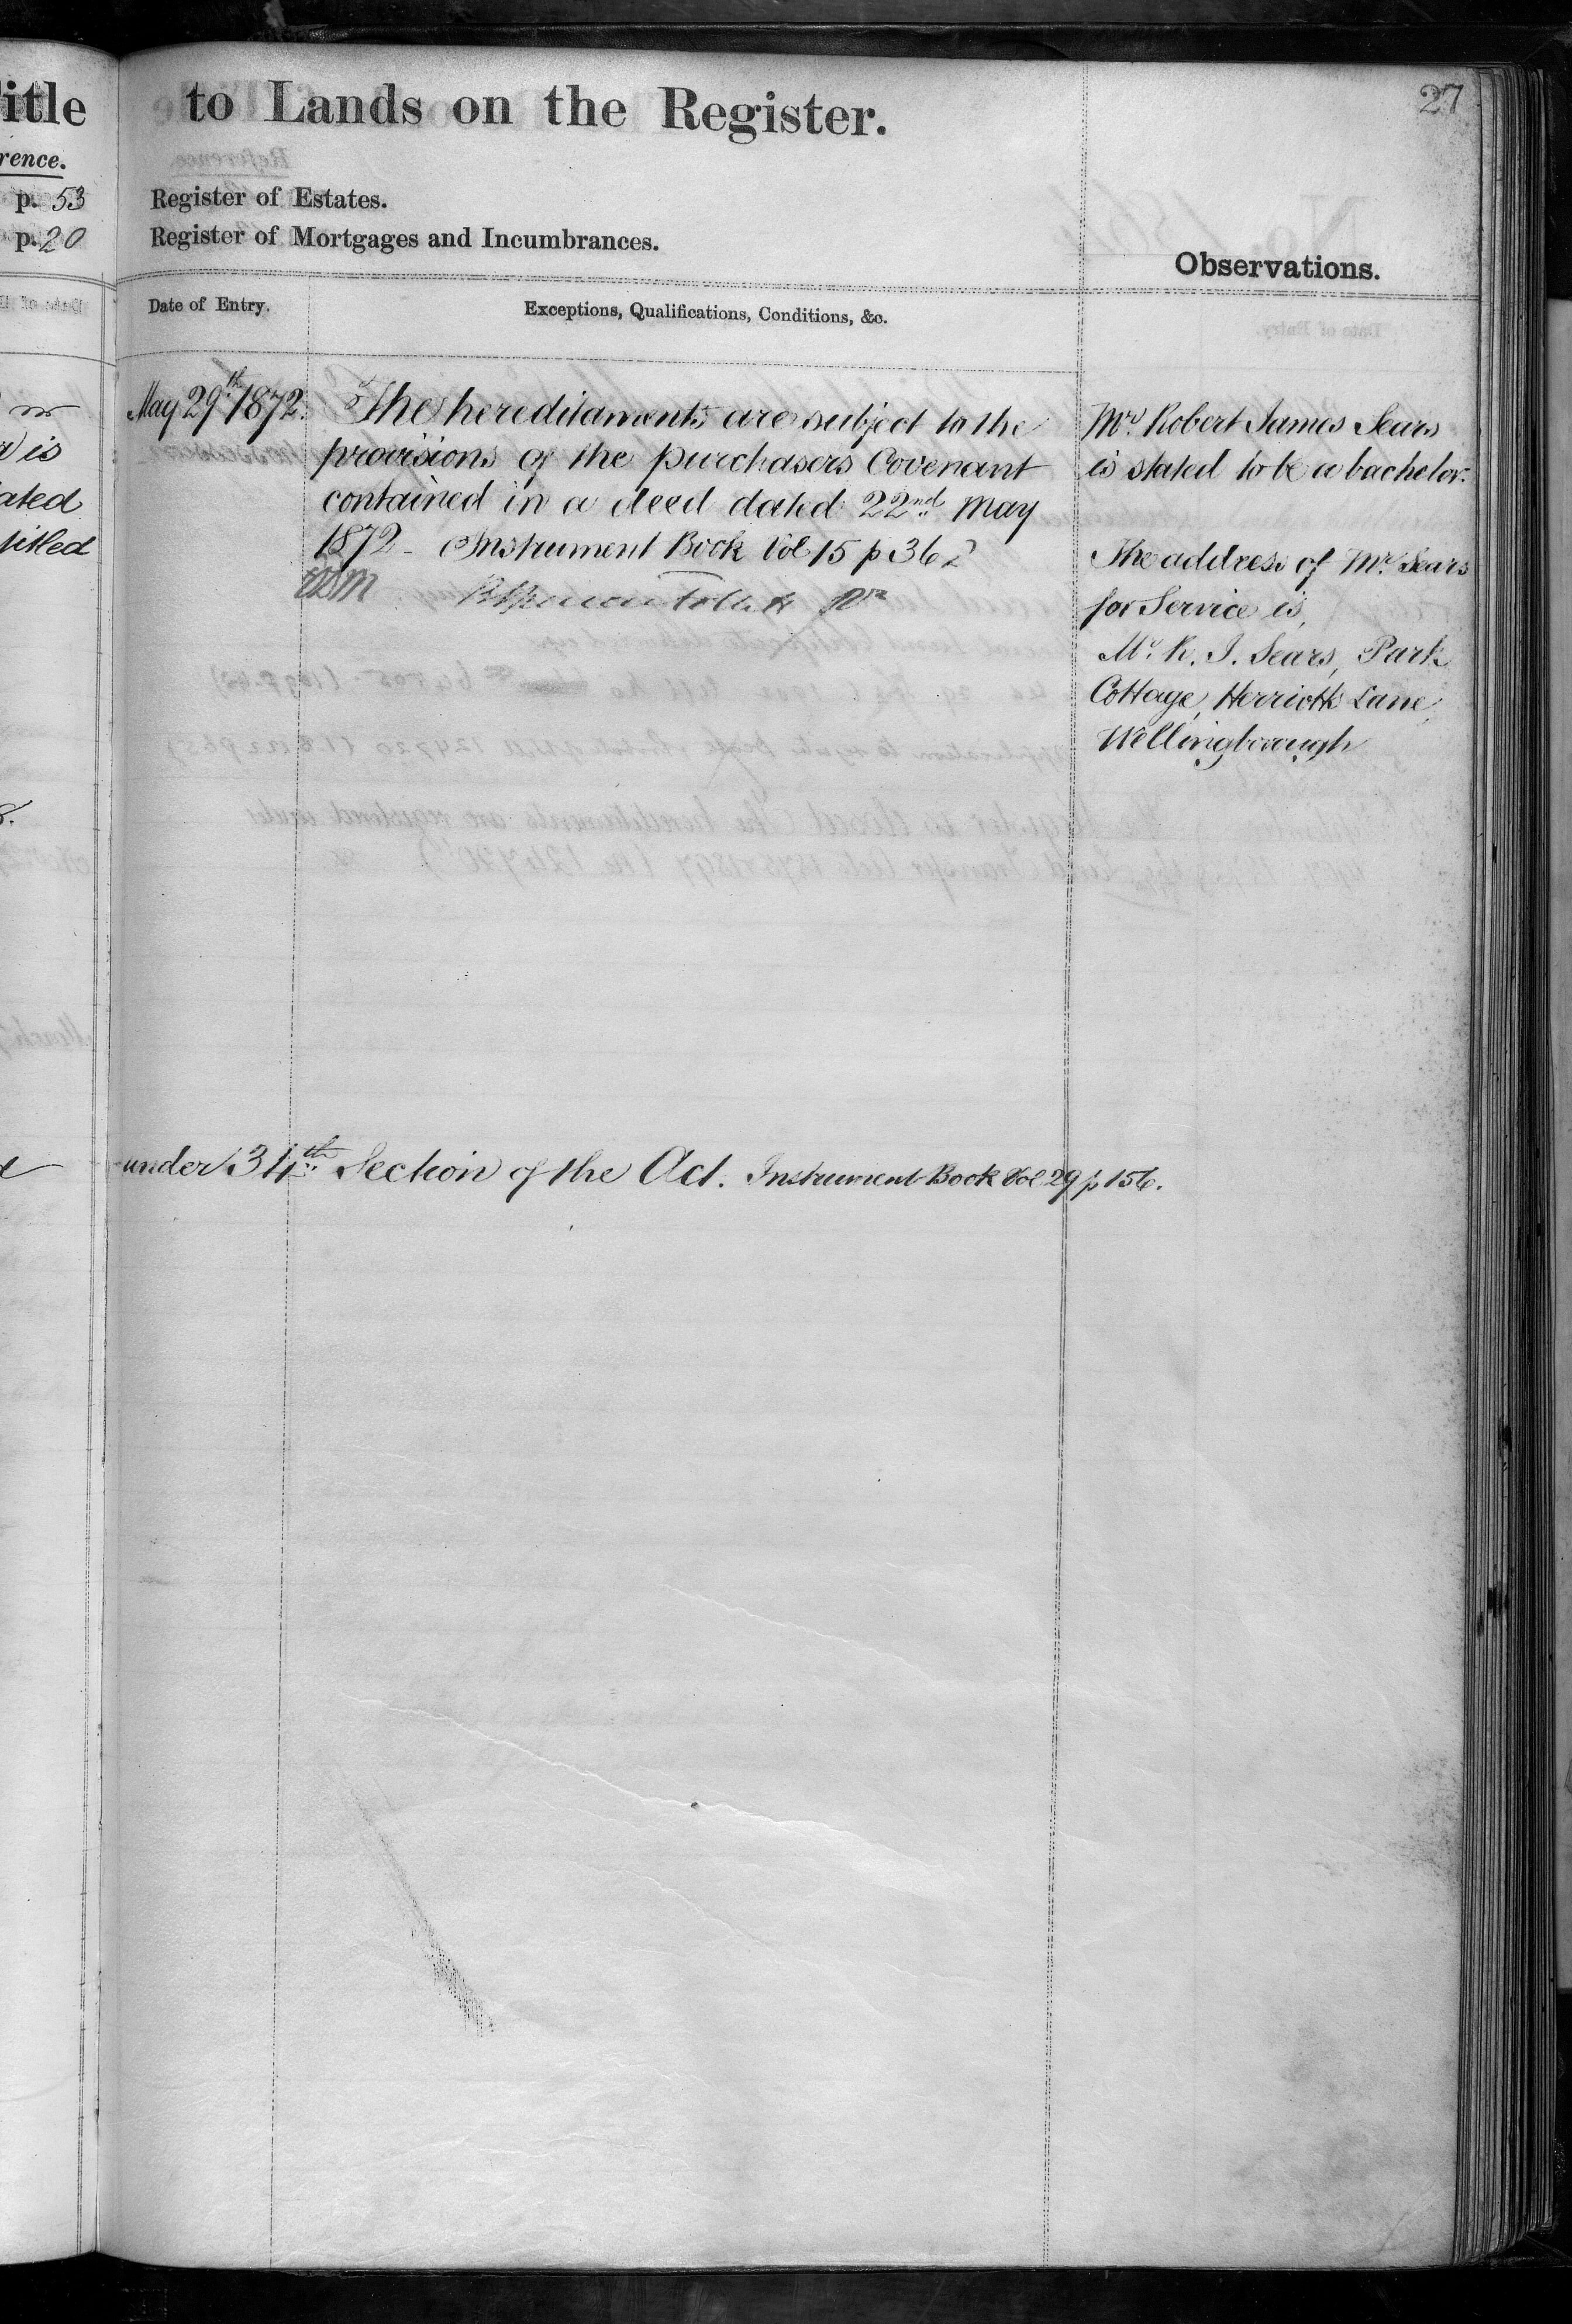 27
itle to Lands on the Register.
rence.
p. 53 Register of Estates.
p. 20 Register of Mortgages and Incumbrances.
Observations.
Date of Entry. Exceptions, Qualifications, Conditions, &c.
May 29th 1872. The hereditaments are subject to the
provisions of the purchasers Covenant
contained in a deed dated 22nd May
1872 - Instrument Book Vol 15 p 362
Mr. Robert James Sears
is stated to be a bachelor.
The address of Mr. Sears
for Service is,
Mr. R. J. Sears, Park
Cottage, Herriotts Lane,
Wellingborough
is
ated
titled
8.
under 34th Section of the Act. Instrument Book Vol 29 p 156.